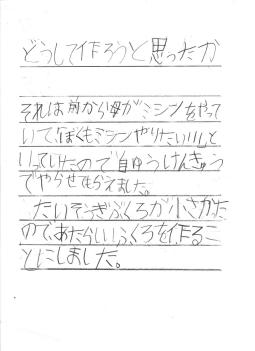 どうして作ろうと思ったか
それは前から母がミシンをやって
いて、「ぼくもミシンやりたい!!!」と
いっていたので自ゆうけんきゅう
でやらせてもらえました。
たいそうぎぶくろが小さかった
ので、あたらしいふくろを作るこ
とにしました。